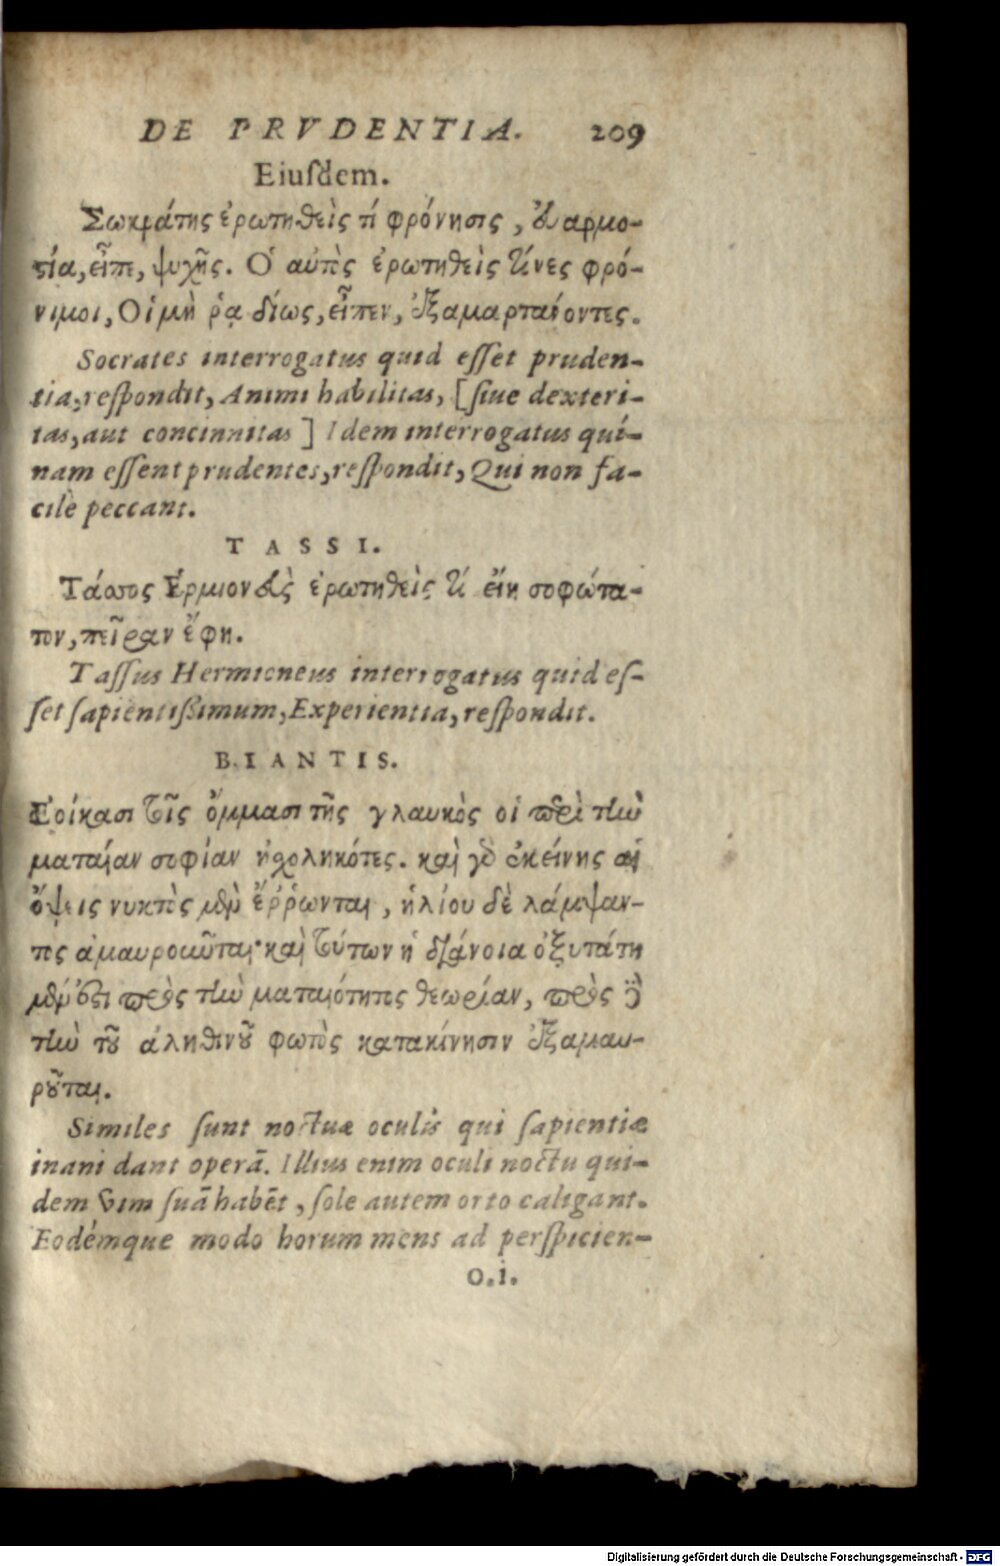 DE PRVDENTIA. 209
Eiusdem.
Σωκράτης ἐρωτηθεὶς τί φρόνησις, εὐαρμο-
στία, εἶπε, ψυχῆς. Ὁ αὐτὸς ἐρωτηθεὶς τίνες φρό-
νιμοι, Οἱ μὴ ῥᾳδίως, εἶπεν, ἐξαμαρτάνοντες.
Socrates interrogatus quid esset pruden-
tia, respondit, Animi habilitas, [siue dexteri-
tas, aut concinnitas] Idem interrogatus qui-
nam essent prudentes, respondit, Qui non fa-
cilè peccant.
TASSI.
Τάσσος Ἑρμιονεὺς ἐρωτηθεὶς τί εἴη σοφώτα-
τον, πεῖραν ἔφη.
Tassus Hermioneus interrogatus quid es-
set sapientißimum, Experientia, respondit.
BIANTIS.
Ἐοίκασι τοῖς ὄμμασι τῆς γλαυκὸς οἱ περὶ τὴν
ματαίαν σοφίαν ἠχοληκότες. καὶ γὸ ἐκείνης αἱ
ὄψεις νυκτὸς μὲν ἔῤῥωνται, ἡλίου δὲ λάμψαν-
τος ἀμαυροῦνται· καὶ τούτων ἡ διάνοια ὀξυτάτη
μέν ἐστι πρὸς τὴν ματαιότητος θεωρίαν, πρὸς δὲ
τὴν τοῦ ἀληθινοῦ φωτὸς κατακίνησιν ἐξαμαυ-
ροῦται.
Similes sunt noctuæ oculis qui sapientiæ
inani dant operā. Illius enim oculi noctu qui-
dem vim suā habēt, sole autem orto caligant.
Eodémque modo horum mens ad perspicien-
O.i.
Digitalisierung gefördert durch die Deutsche Forschungsgemeinschaft - DFG